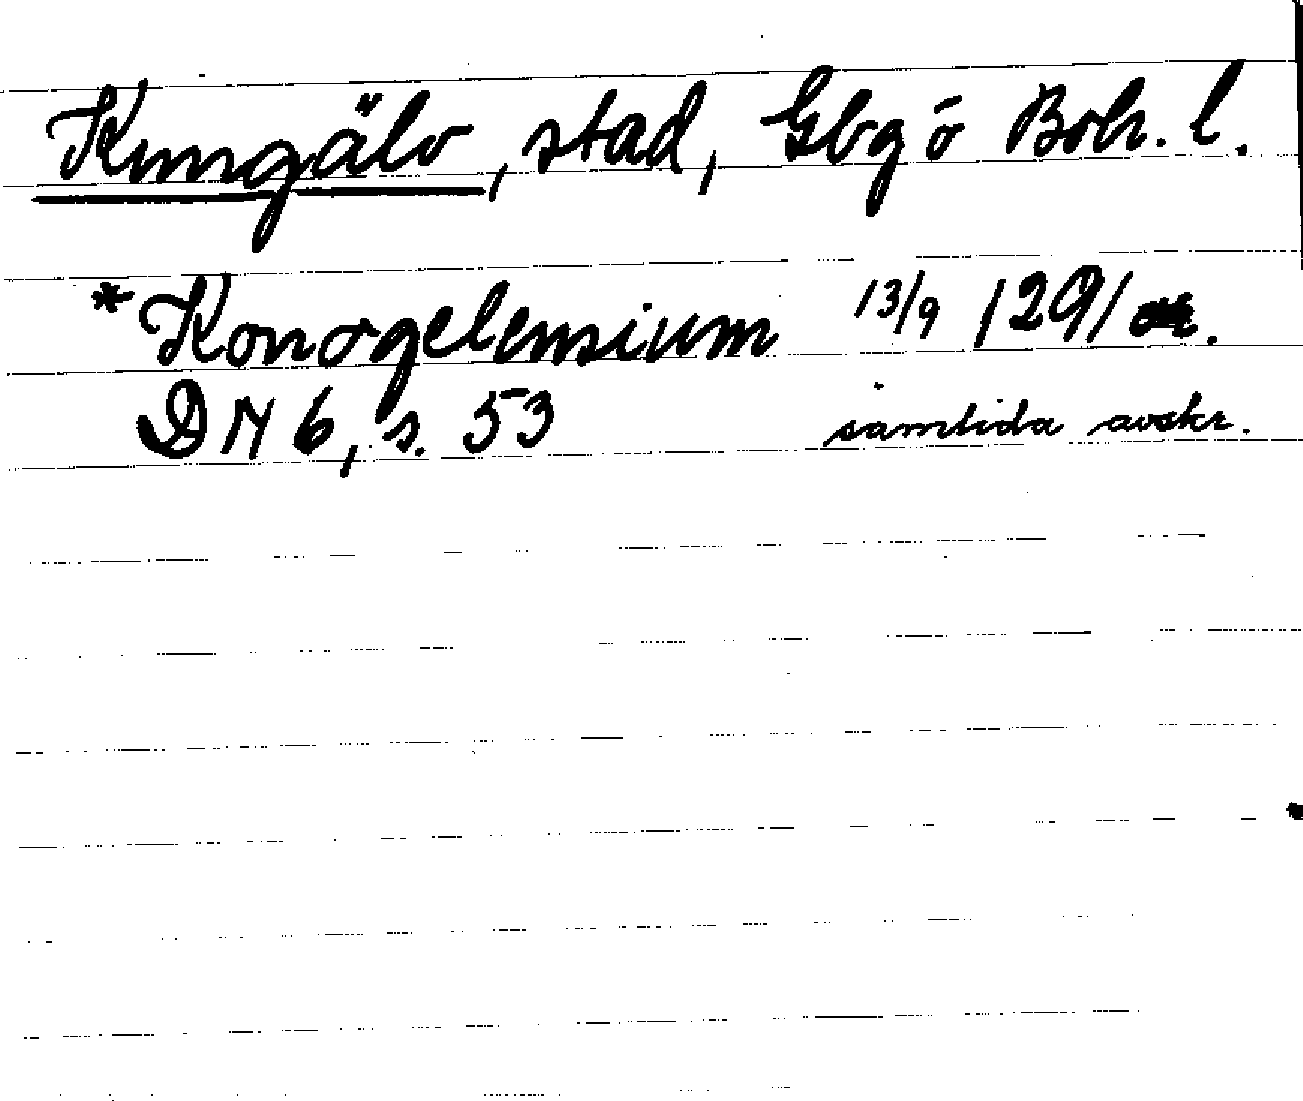 Kungälv, stad, Gbg ö Boh. l.
*Konorgelensium 13/9 1291
DN 6, s. 53 samtida avskr.